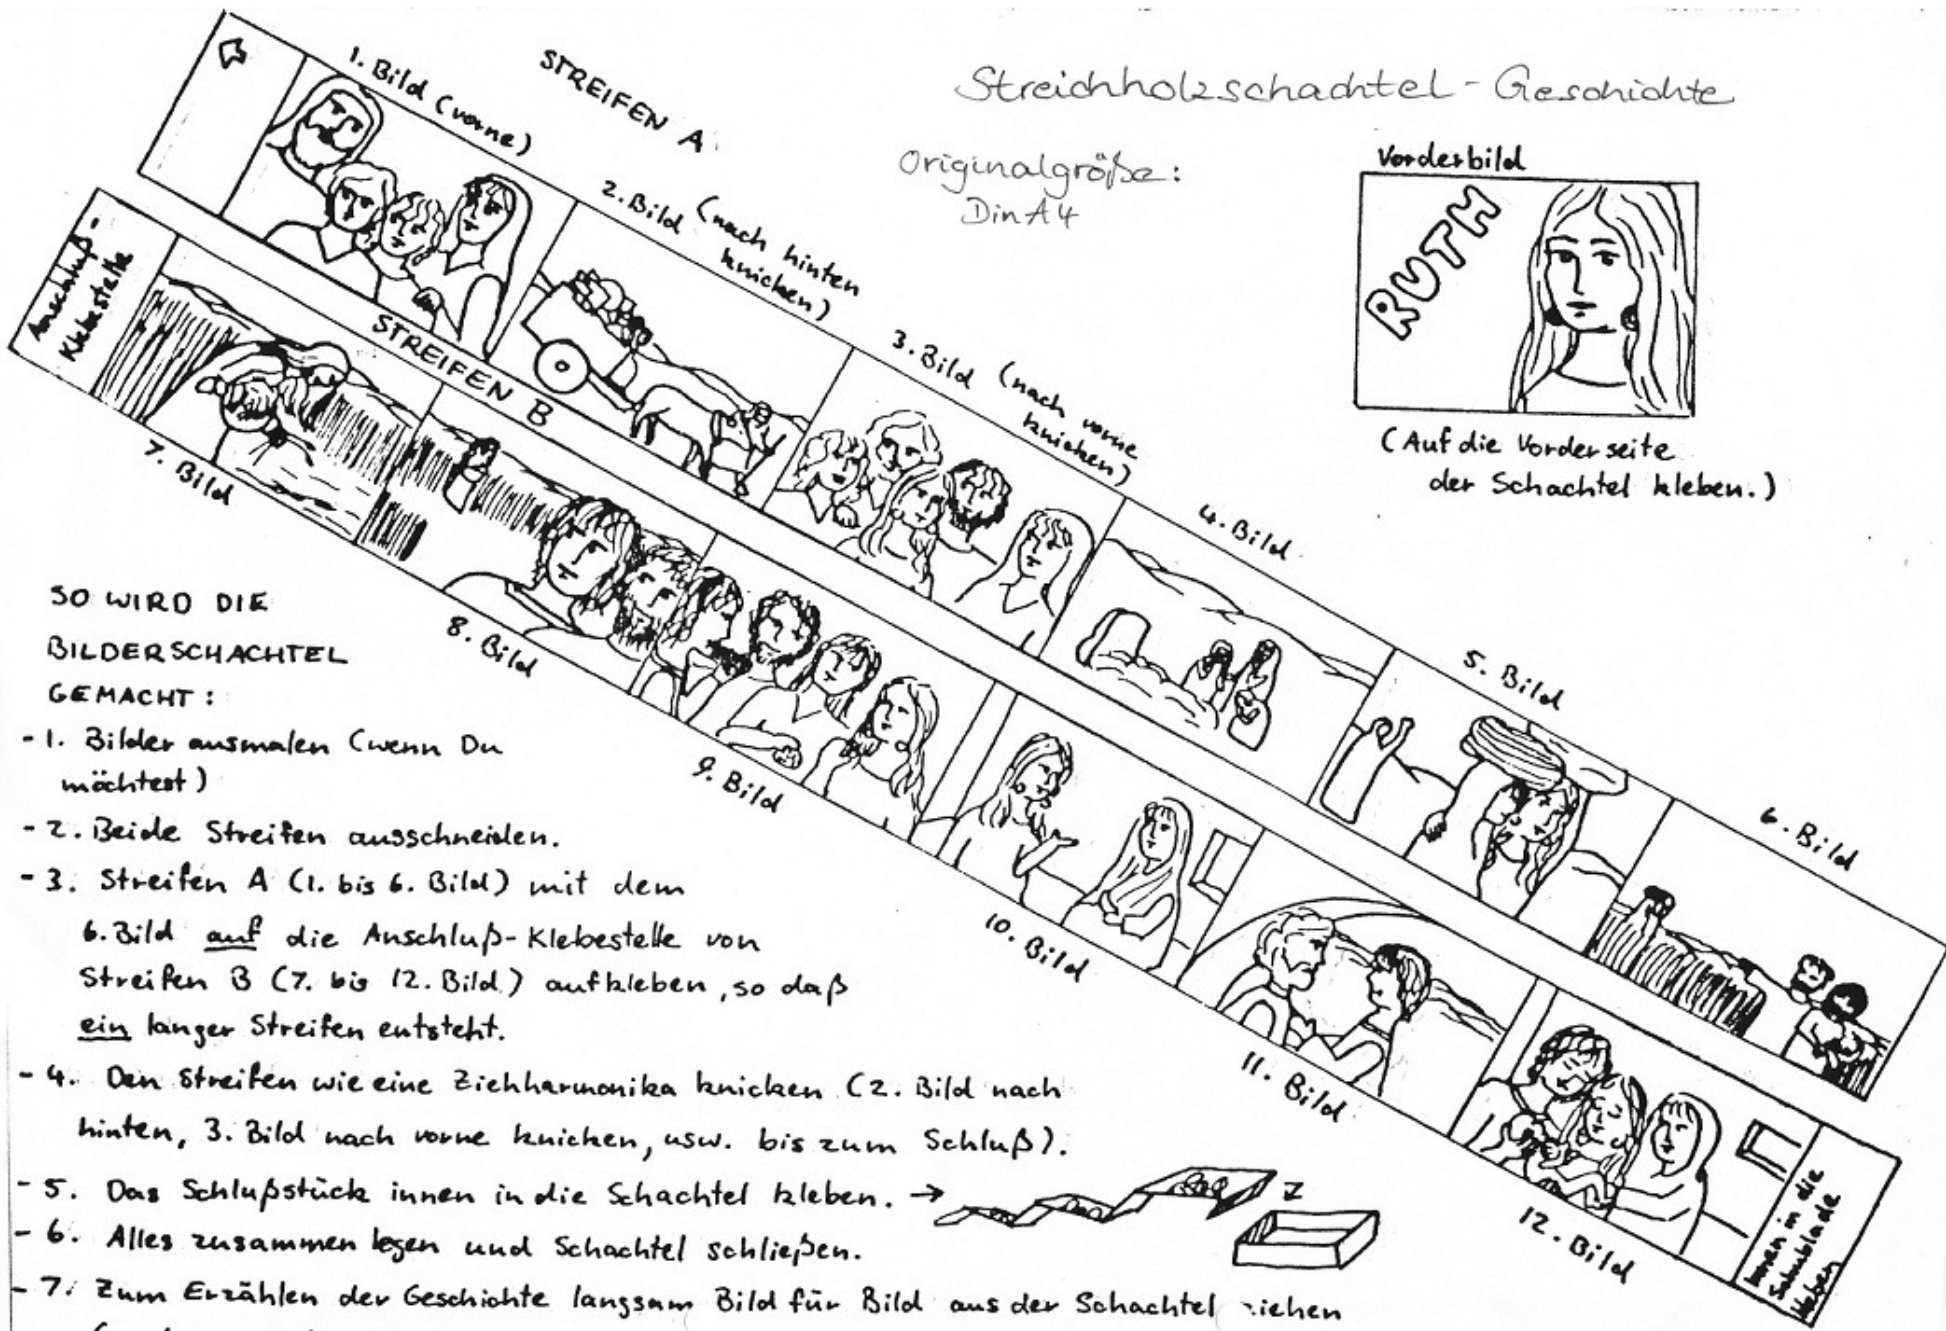 Streichholzschachtel-Geschichte
Originalgröße:
Din A4
Vorderbild
RUTH
(Auf die Vorderseite
der Schachtel kleben.)
STREIFEN A
1. Bild (vorne)
2. Bild (nach hinten
knicken)
3. Bild (nach vorne
knicken)
4. Bild
5. Bild
6. Bild
STREIFEN B
Anschluß-
Klebestelle
7. Bild
8. Bild
9. Bild
10. Bild
11. Bild
12. Bild
Innen in die
Schublade
kleben
SO WIRD DIE
BILDERSCHACHTEL
GEMACHT:
- 1. Bilder ausmalen (wenn Du
möchtest)
- 2. Beide Streifen ausschneiden.
- 3. Streifen A (1. bis 6. Bild) mit dem
6. Bild auf die Anschluß-Klebestelle von
Streifen B (7. bis 12. Bild) aufkleben, so daß
ein langer Streifen entsteht.
- 4. Den Streifen wie eine Ziehharmonika knicken (2. Bild nach
hinten, 3. Bild nach vorne knicken, usw. bis zum Schluß).
- 5. Das Schlußstück innen in die Schachtel kleben. →
- 6. Alles zusammen legen und Schachtel schließen.
- 7. Zum Erzählen der Geschichte langsam Bild für Bild aus der Schachtel ziehen